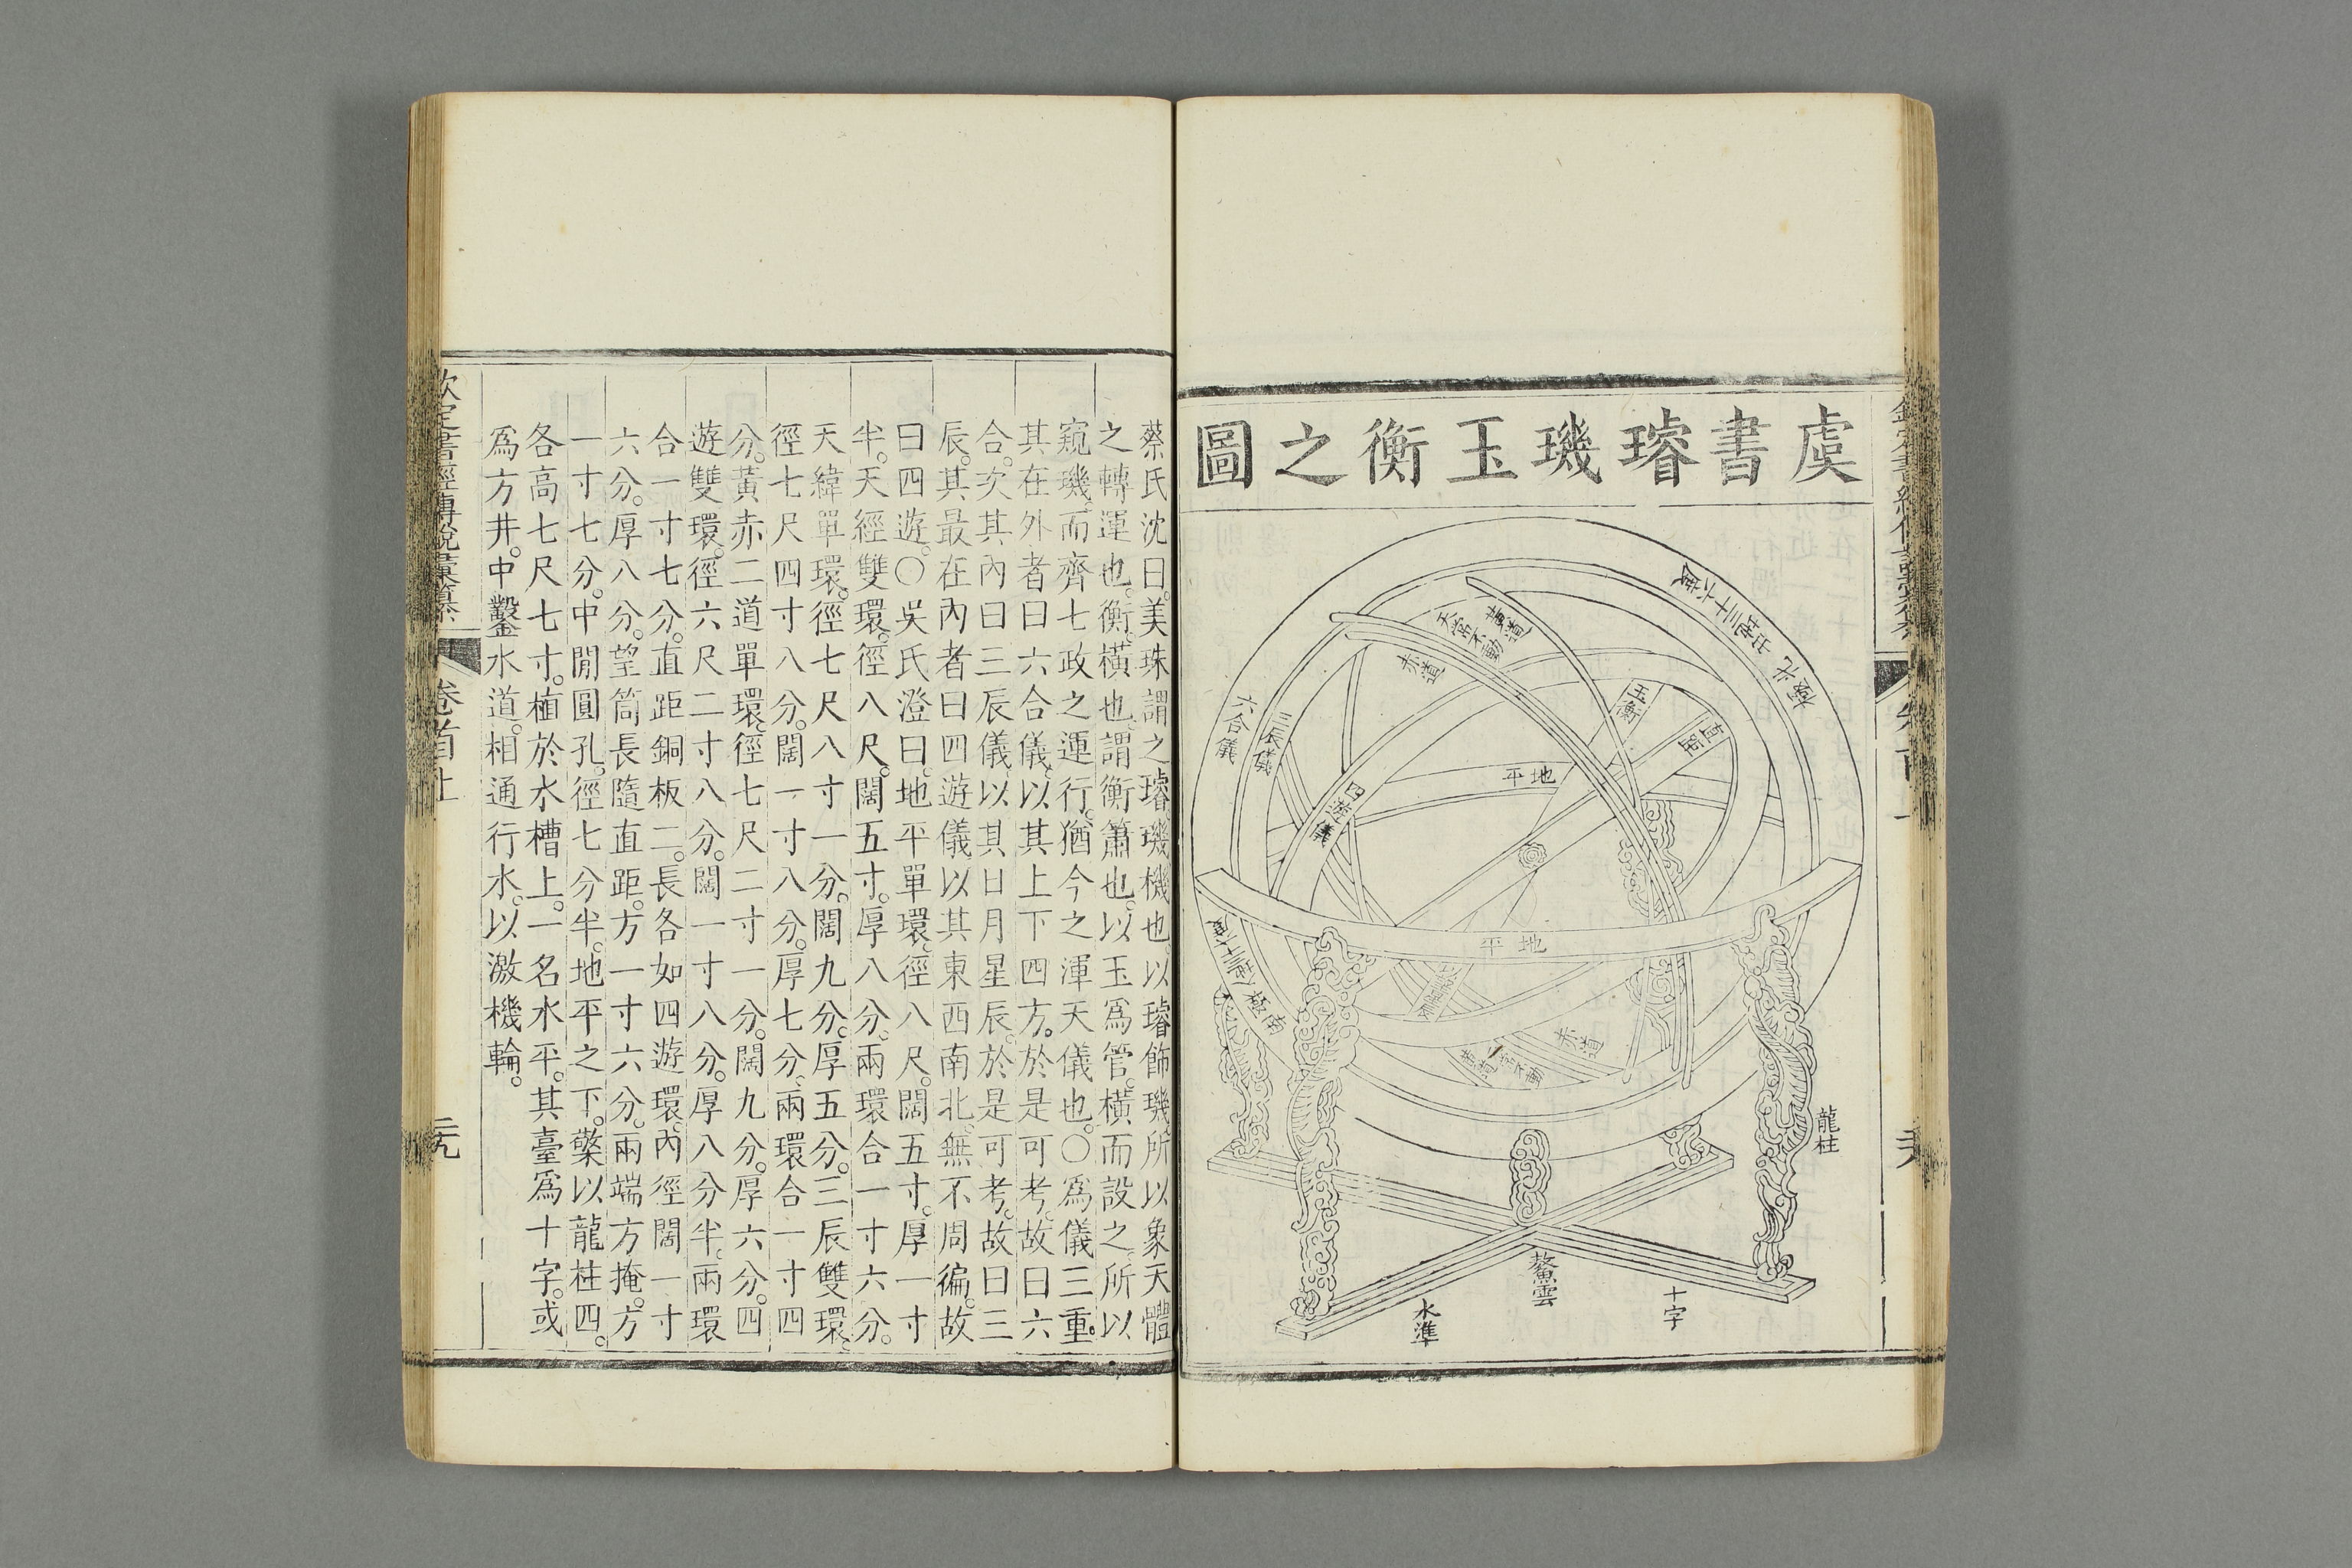 虞書璿璣玉衡之圖
北極出地三十六度
黃道
天常不動
赤道
玉衡
直距
六合儀
三辰儀
四遊儀
地平
地平
南極入地三十六度
赤道
天常不動
黃道
龍柱
鰲雲
十字
水準
蔡氏沈曰。美珠謂之璿。璣。機也。以璿飾璣。所以象天體
之轉運也。衡。橫也。謂衡簫也。以玉爲管。橫而設之。所以
窺璣。而齊七政之運行。猶今之渾天儀也。〇爲儀三重。
其在外者曰六合儀。以其上下四方。於是可考。故曰六
合。次其內曰三辰儀。以其日月星辰。於是可考。故曰三
辰。其最在內者曰四遊儀。以其東西南北。無不周徧。故
曰四遊。〇吳氏澄曰。地平單環。徑八尺。闊五寸。厚一寸
半。天經雙環。徑八尺。闊五寸。厚八分。兩環合一寸六分。
天緯單環。徑七尺八寸一分。闊九分。厚五分。三辰雙環。
徑七尺四寸八分。闊一寸八分。厚七分。兩環合一寸四
分。黃赤二道單環。徑七尺二寸一分。闊九分。厚六分。四
遊雙環。徑六尺二寸八分。闊一寸八分。厚八分半。兩環
合一寸七分。直距銅板二。長各如四遊環。內徑闊一寸
六分。厚八分。望筒長隨直距。方一寸六分。兩端方掩。方
一寸七分。中閒圓孔。徑七分半。地平之下。檠以龍柱四。
各高七尺七寸。植於水槽上。一名水平。其臺爲十字。或
爲方井。中鑿水道。相通行水。以激機輪。
欽定書經傳說彙纂
卷首上
元